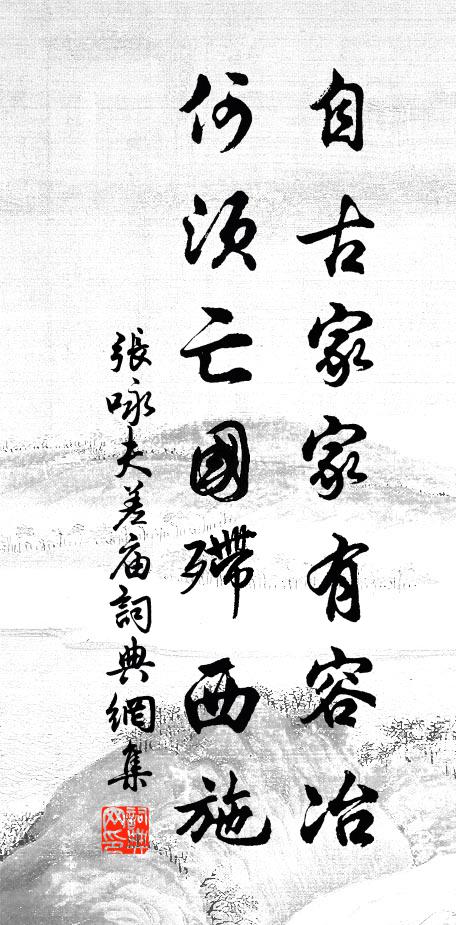 自古家家有容冶
何須亡國殢西施
張咏夫差庙詞典網集